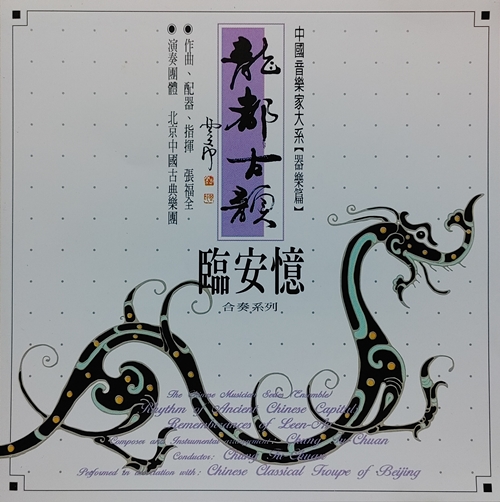 中國音樂家大系【器樂篇】
龍都古韻
●作曲、配器、指揮 張福全·
●演奏團體 北京中國古典樂團
臨安憶
合奏系列
The Chinese Musician Series (Ensemble)
Rhythm of Ancient Chinese Capitals
Remembrances of Leen-An
Composer and Instrumental arrangement: Chang Fu-Chuan
Conductor: Chang Fu-Chuan
Performed in association with: Chinese Classical Troupe of Beijing